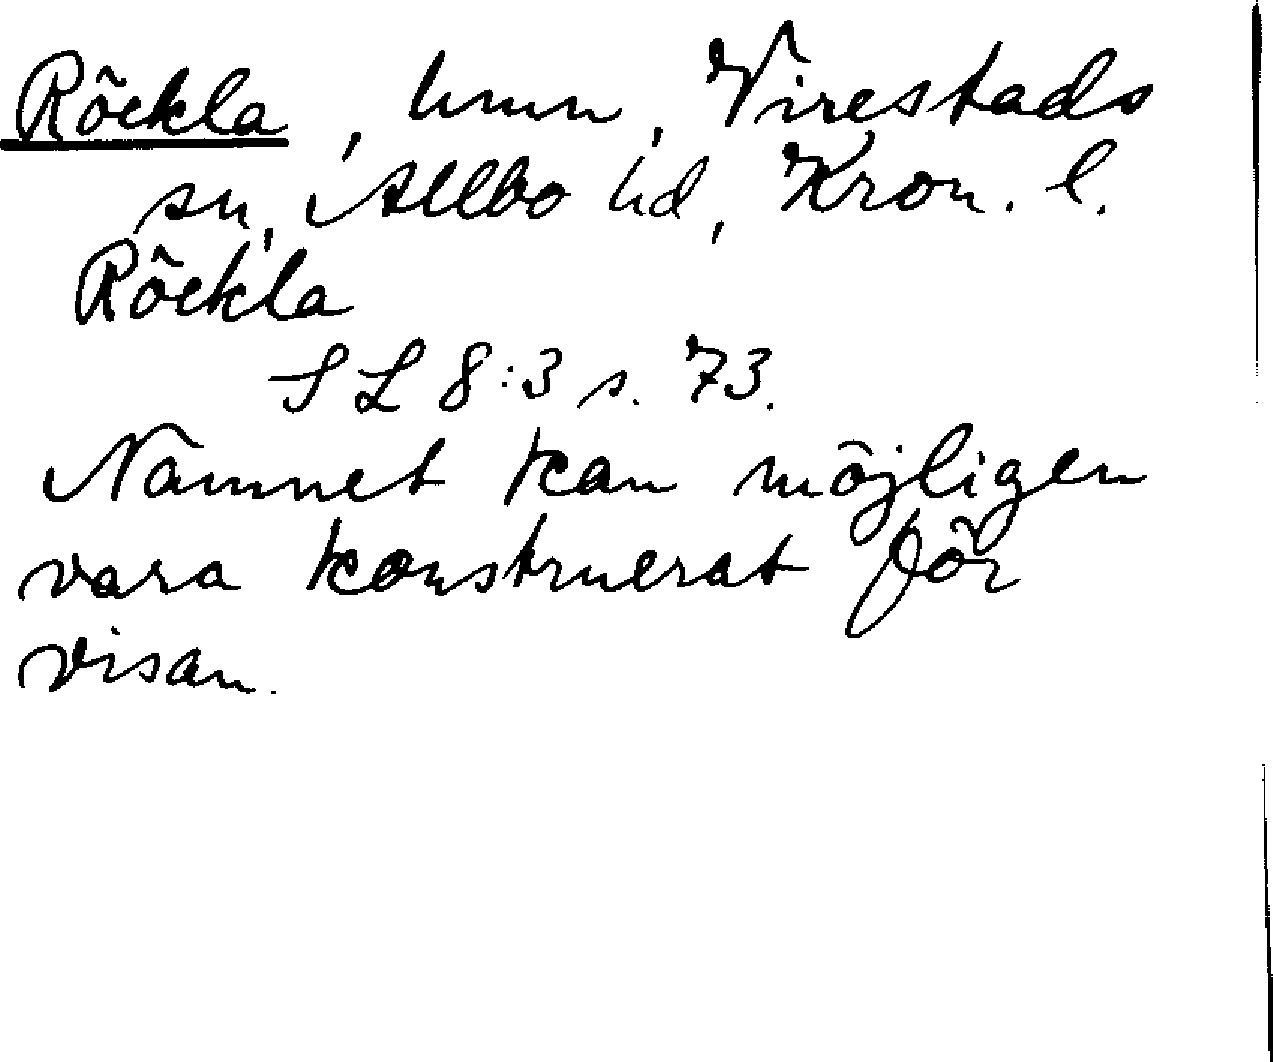 Röckla, hmn, Virestads
sn, Allbo hd, Kron. l.
Röckla
SL 8:3 s. 73.
Namnet kan möjligen
vara konstruerat för
visan.